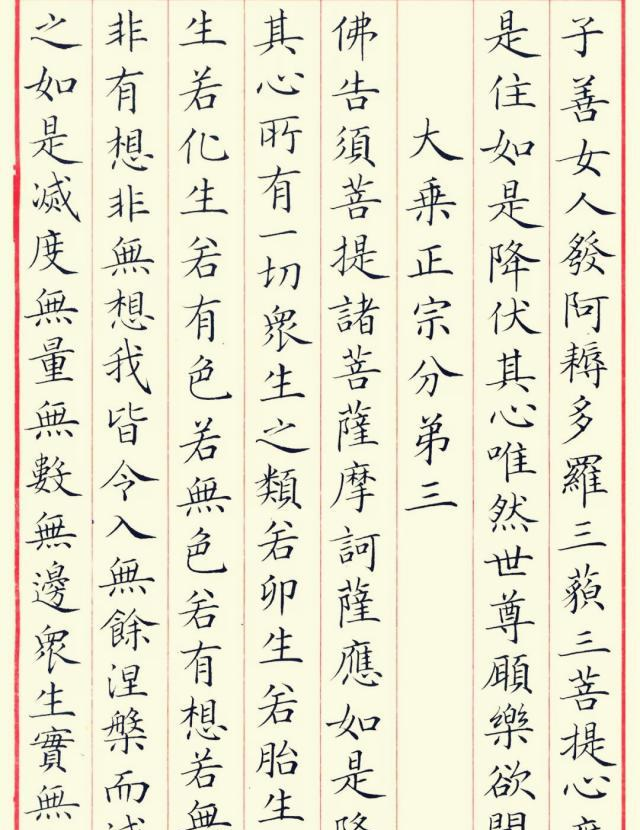 子善女人發阿耨多羅三藐三菩提心
是住如是降伏其心唯然世尊願樂欲
大乗正宗分弟三
佛告須菩提諸菩薩摩訶薩應如是
其心所有一切衆生之類若卵生若胎生
生若化生若有色若無色若有想若無
非有想非無想我皆令入無餘涅槃而
之如是滅度無量無數無邊衆生實無